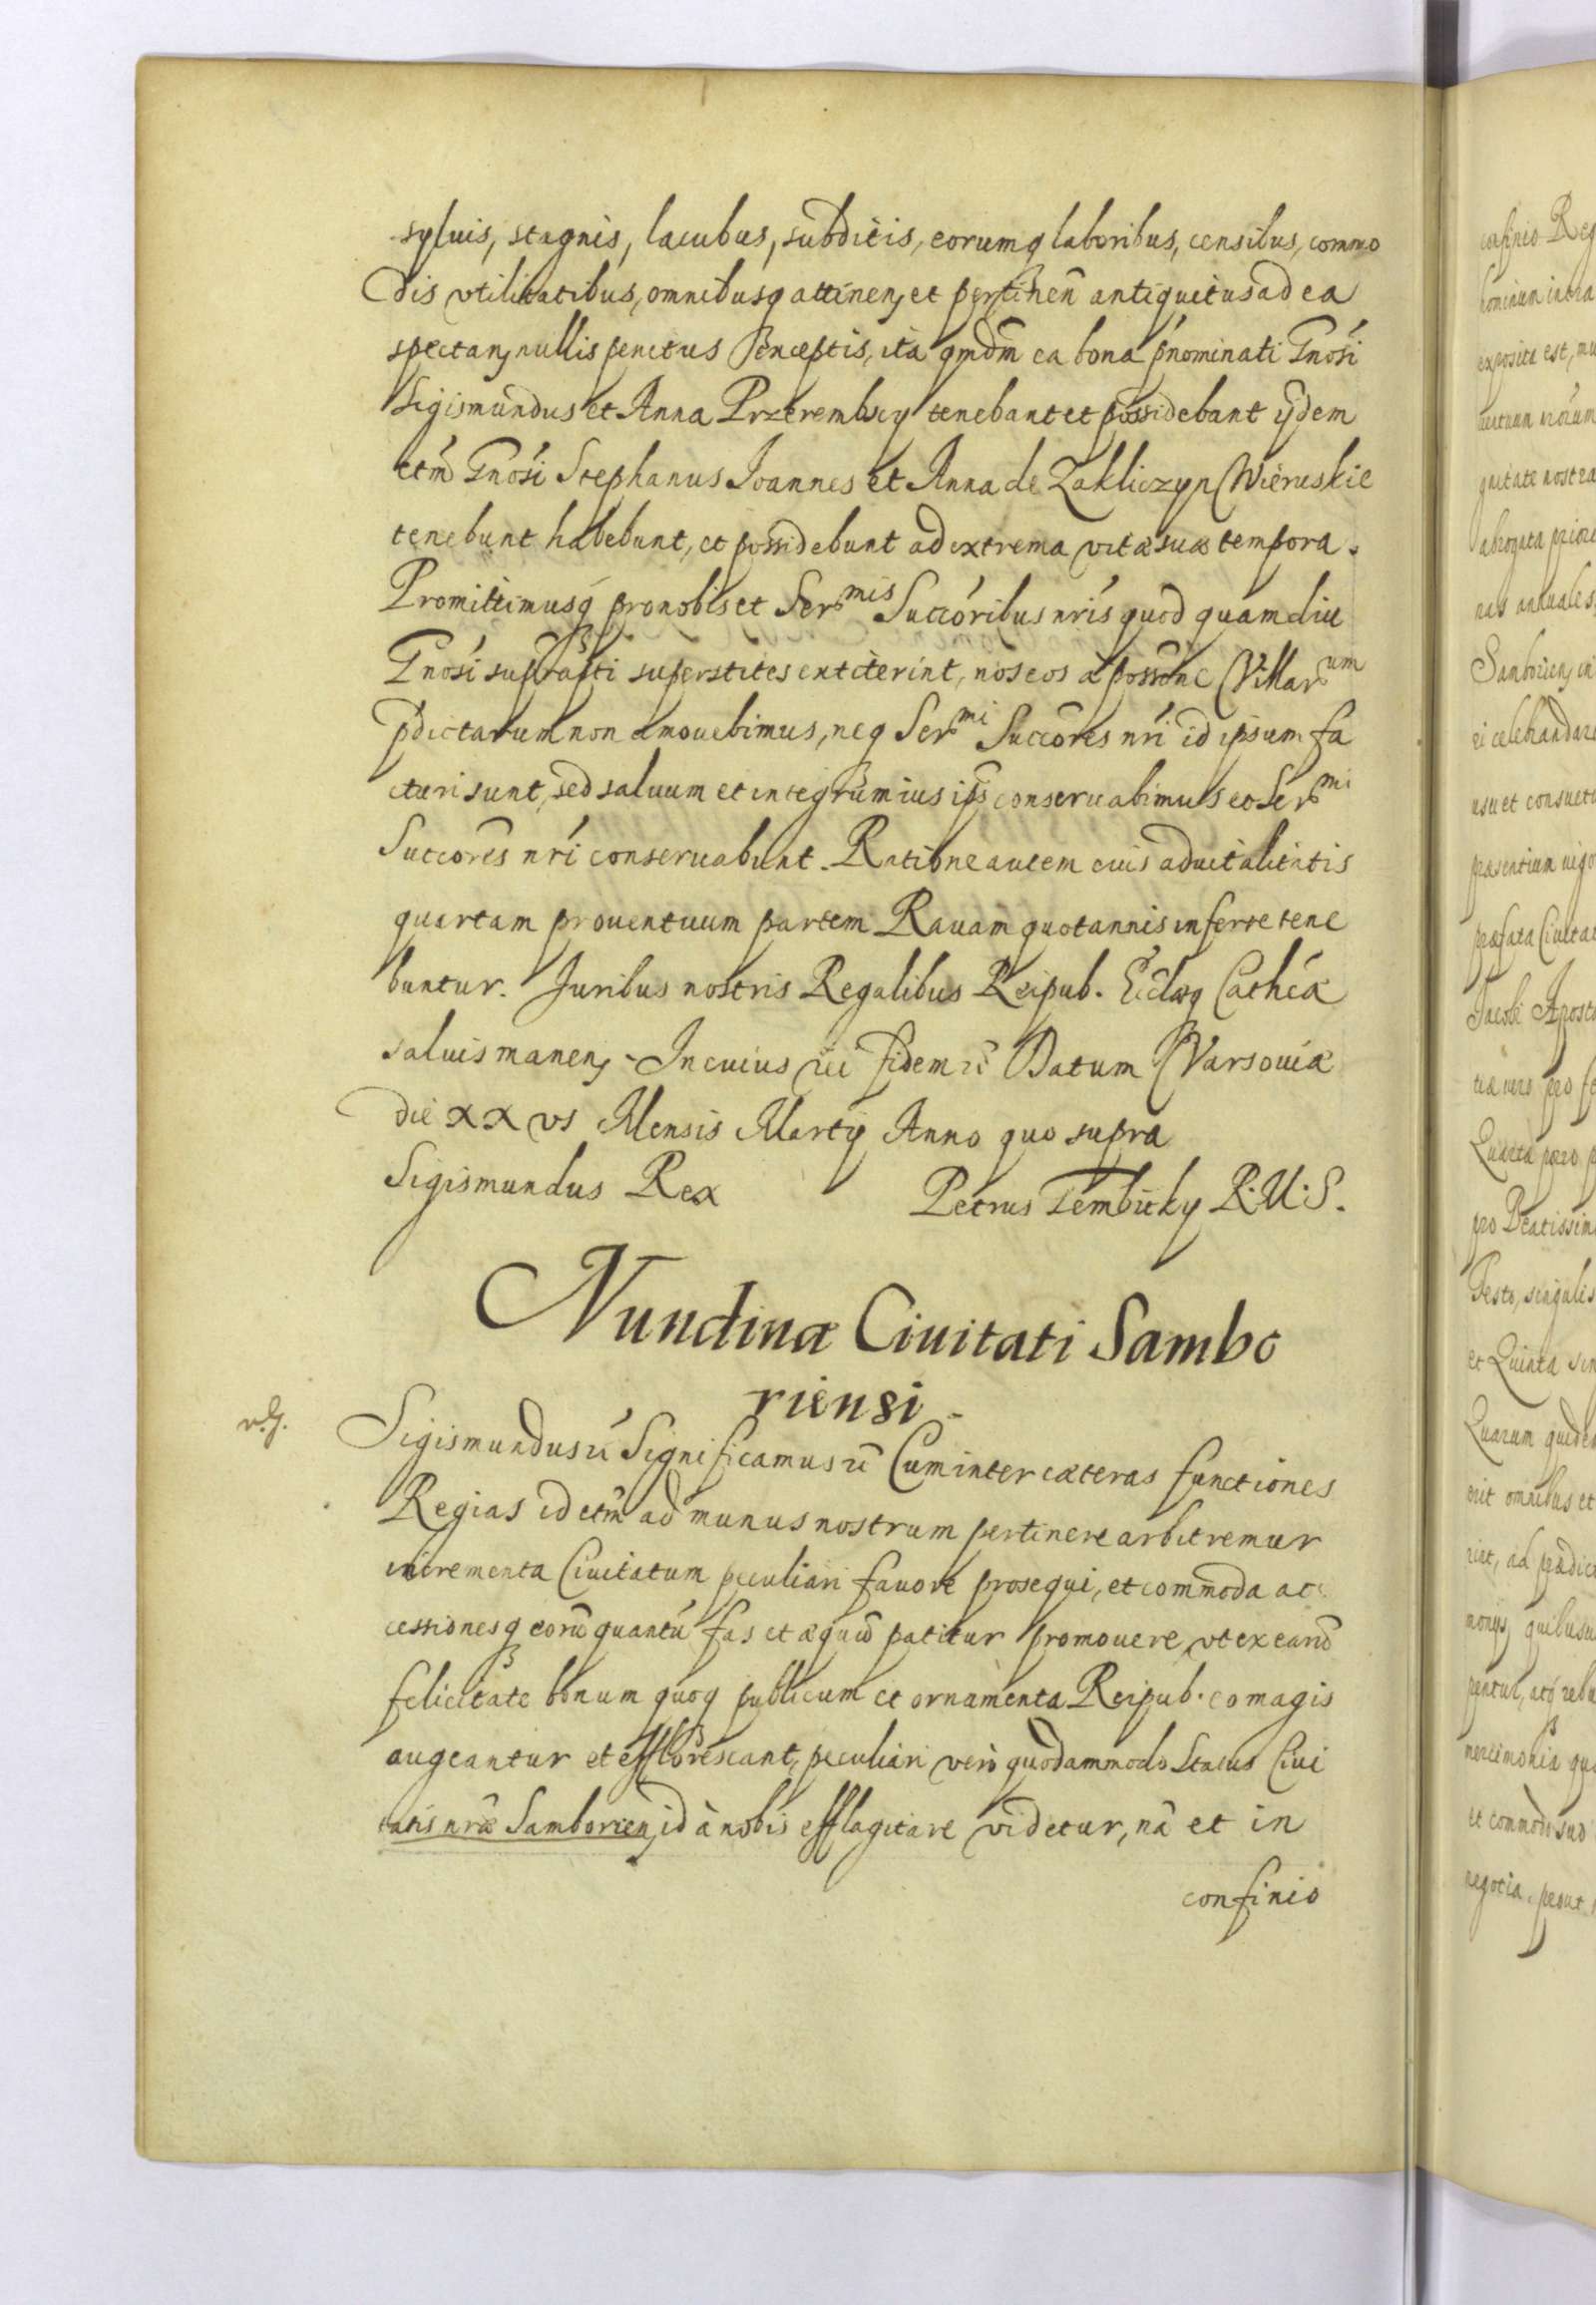 syluis, stagnis, lacubus, subditis, eorumq laboribus, censibus, commo
dis vtilitatibus, omnibusq attinen, et pertinen̄ antiquitus ad ea
spectan, nullis penitus exceptis, ita qmdm̄ ea bona p̄nominati Gn̄osi
Sigismundus et Anna Przerembscy tenebant et possidebant ijdem
etm̄ Gn̄osi Stephanus Joannes et Anna de Zakliczyn Wieruskie
tenebunt habebunt, et possidebunt ad extrema vitæ suæ tempora.
Promittimusq́ pro nobis et Serᵐⁱˢ Succōribus nr̄is quod quamdiu
Gn̄osi supraſti superstites extiterint, nos eos à possōne Villarᵘᵐ
p̄dictarum non amouebimus, neq Serᵐⁱ Succōres nr̄i id ipsum fa
cturi sunt, sed saluum et integrum ius ip̄is conseruabimus et Serᵐⁱ
Succōres nr̄i conseruabunt. Ratione autem eius aduitalitatis
quartam prouentuum partem Rauam quotannis inferre tene
buntur. Juribus nostris Regalibus Reipub. Eccl̄æq Cathc̄æ
saluis manen, In cuius rei fidem &c̄ Datum Varsouiæ
die XXVI Mensis Martij Anno quo supra
Sigismundus Rex Petrus Tembicky R. M. S.
Nundinæ Ciuitati Sambo
riensi.
Sigismundus &c̄ Significamus &c̄ Cum inter cæteras functiones
Regias id etm̄ ad munus nostrum pertinere arbitremur
incrementa Ciuitatum peculiari fauore prosequi, et commoda ac
cessionesq eorū quantū fas et æquū patitur promouere, vt ex earū
felicitate bonum quoq publicum et ornamenta Reipub. eo magis
augeantur et efflorescant, peculiari verò quodammodo Status Ciui
tatis nr̄æ Samborien, id à nobis efflagitare videtur, nā et in
confinio